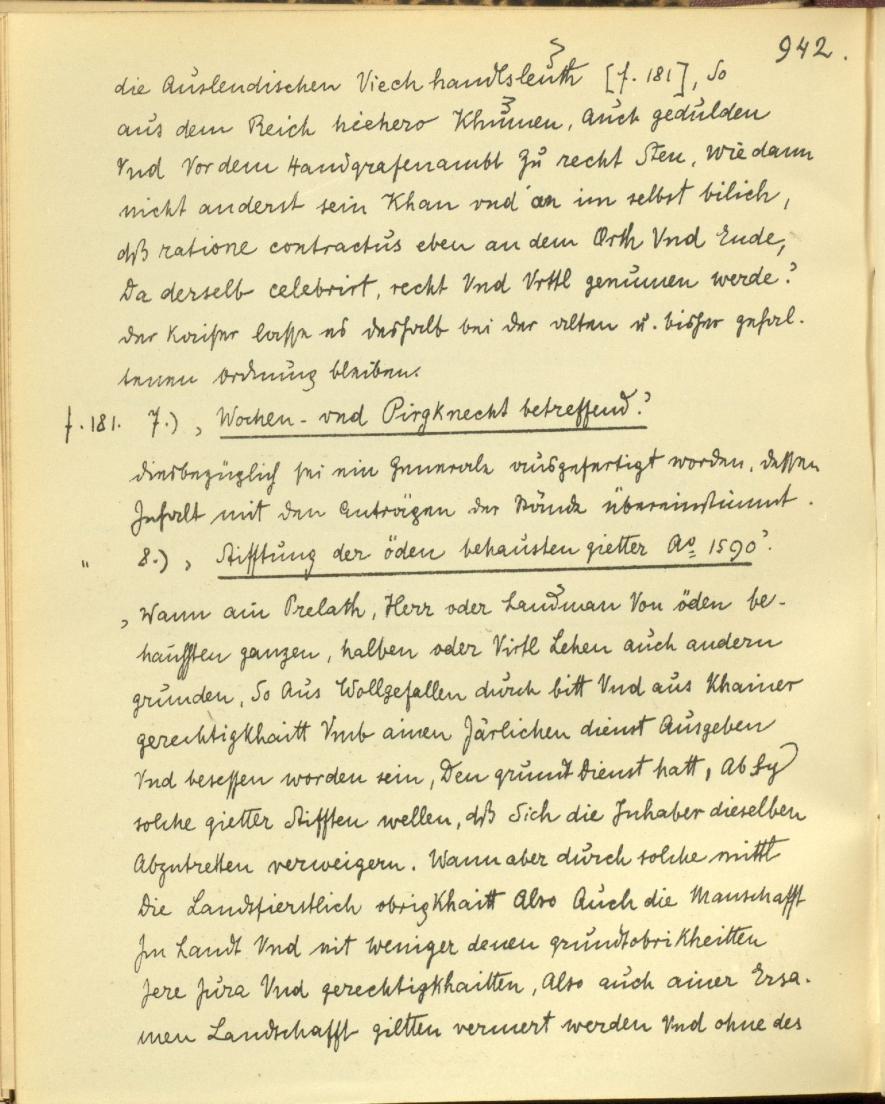 942.
die Auslendischen Viech handlsleuth [f. 181], So
aus dem Reich hiehero Khumen, Auch gedulden
Vnd Vor dem Handgrafenambt Zu recht Sten, Wie dann
nicht anderst sein Khan vnd an im selbst bilich,
dß ratione contractus eben an dem Orth Vnd Ende,
Da derselb celebrirt, recht Vnd Vrttl genumen werde.'
der Kaiser lasse es deshalb bei der alten u. bisher gehal-
tenen ordnung bleiben.
f. 181. 7.) ‚Wochen- vnd Pirgknecht betreffend.'
diesbezüglich sei ein Generale ausgefertigt worden, dessen
Inhalt mit den Anträgen der Stände übereinstimmt.
" 8.) ‚Stifftung der öden behausten gietter Ao 1590'.
‚Wann ain Prelath, Herr oder Landman Von öden be-
haussten ganzen, halben oder Virtl Lehen auch andern
grunden, So Aus Wollgefallen durch bitt Vnd aus Khainer
gerechtigkhaitt Vmb ainen Järlichen dienst Ausgeben
Vnd besessen worden sein, Den grundt dienst hatt, Ab Sy
solche gietter Stifften wellen, dß Sich die Inhaber dieselben
Abzutretten verweigern. Wann aber durch solche mittl
Die Landtsfierstlich obrigkhaitt Also Auch die Manschafft
Im Landt Vnd nit weniger denen grundtobrikheitten
Jere Jura Vnd gerechtigkhaitten, Also auch ainer Ersa-
men Landtschafft giltten vermert werden Vnd ohne des